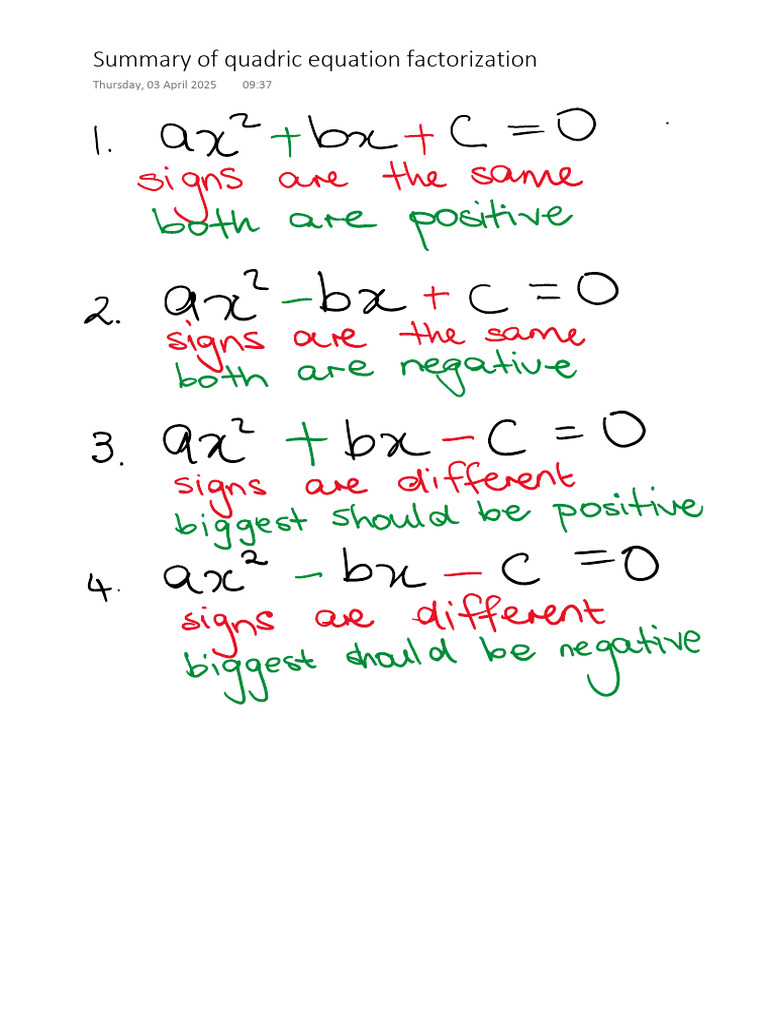 Summary of quadric equation factorization
Thursday, 03 April 2025 09:37
1. ax² + bx + c = 0
signs are the same
both are positive
2. ax² - bx + c = 0
signs are the same
both are negative
3. ax² + bx - c = 0
signs are different
biggest should be positive
4. ax² - bx - c = 0
signs are different
biggest should be negative